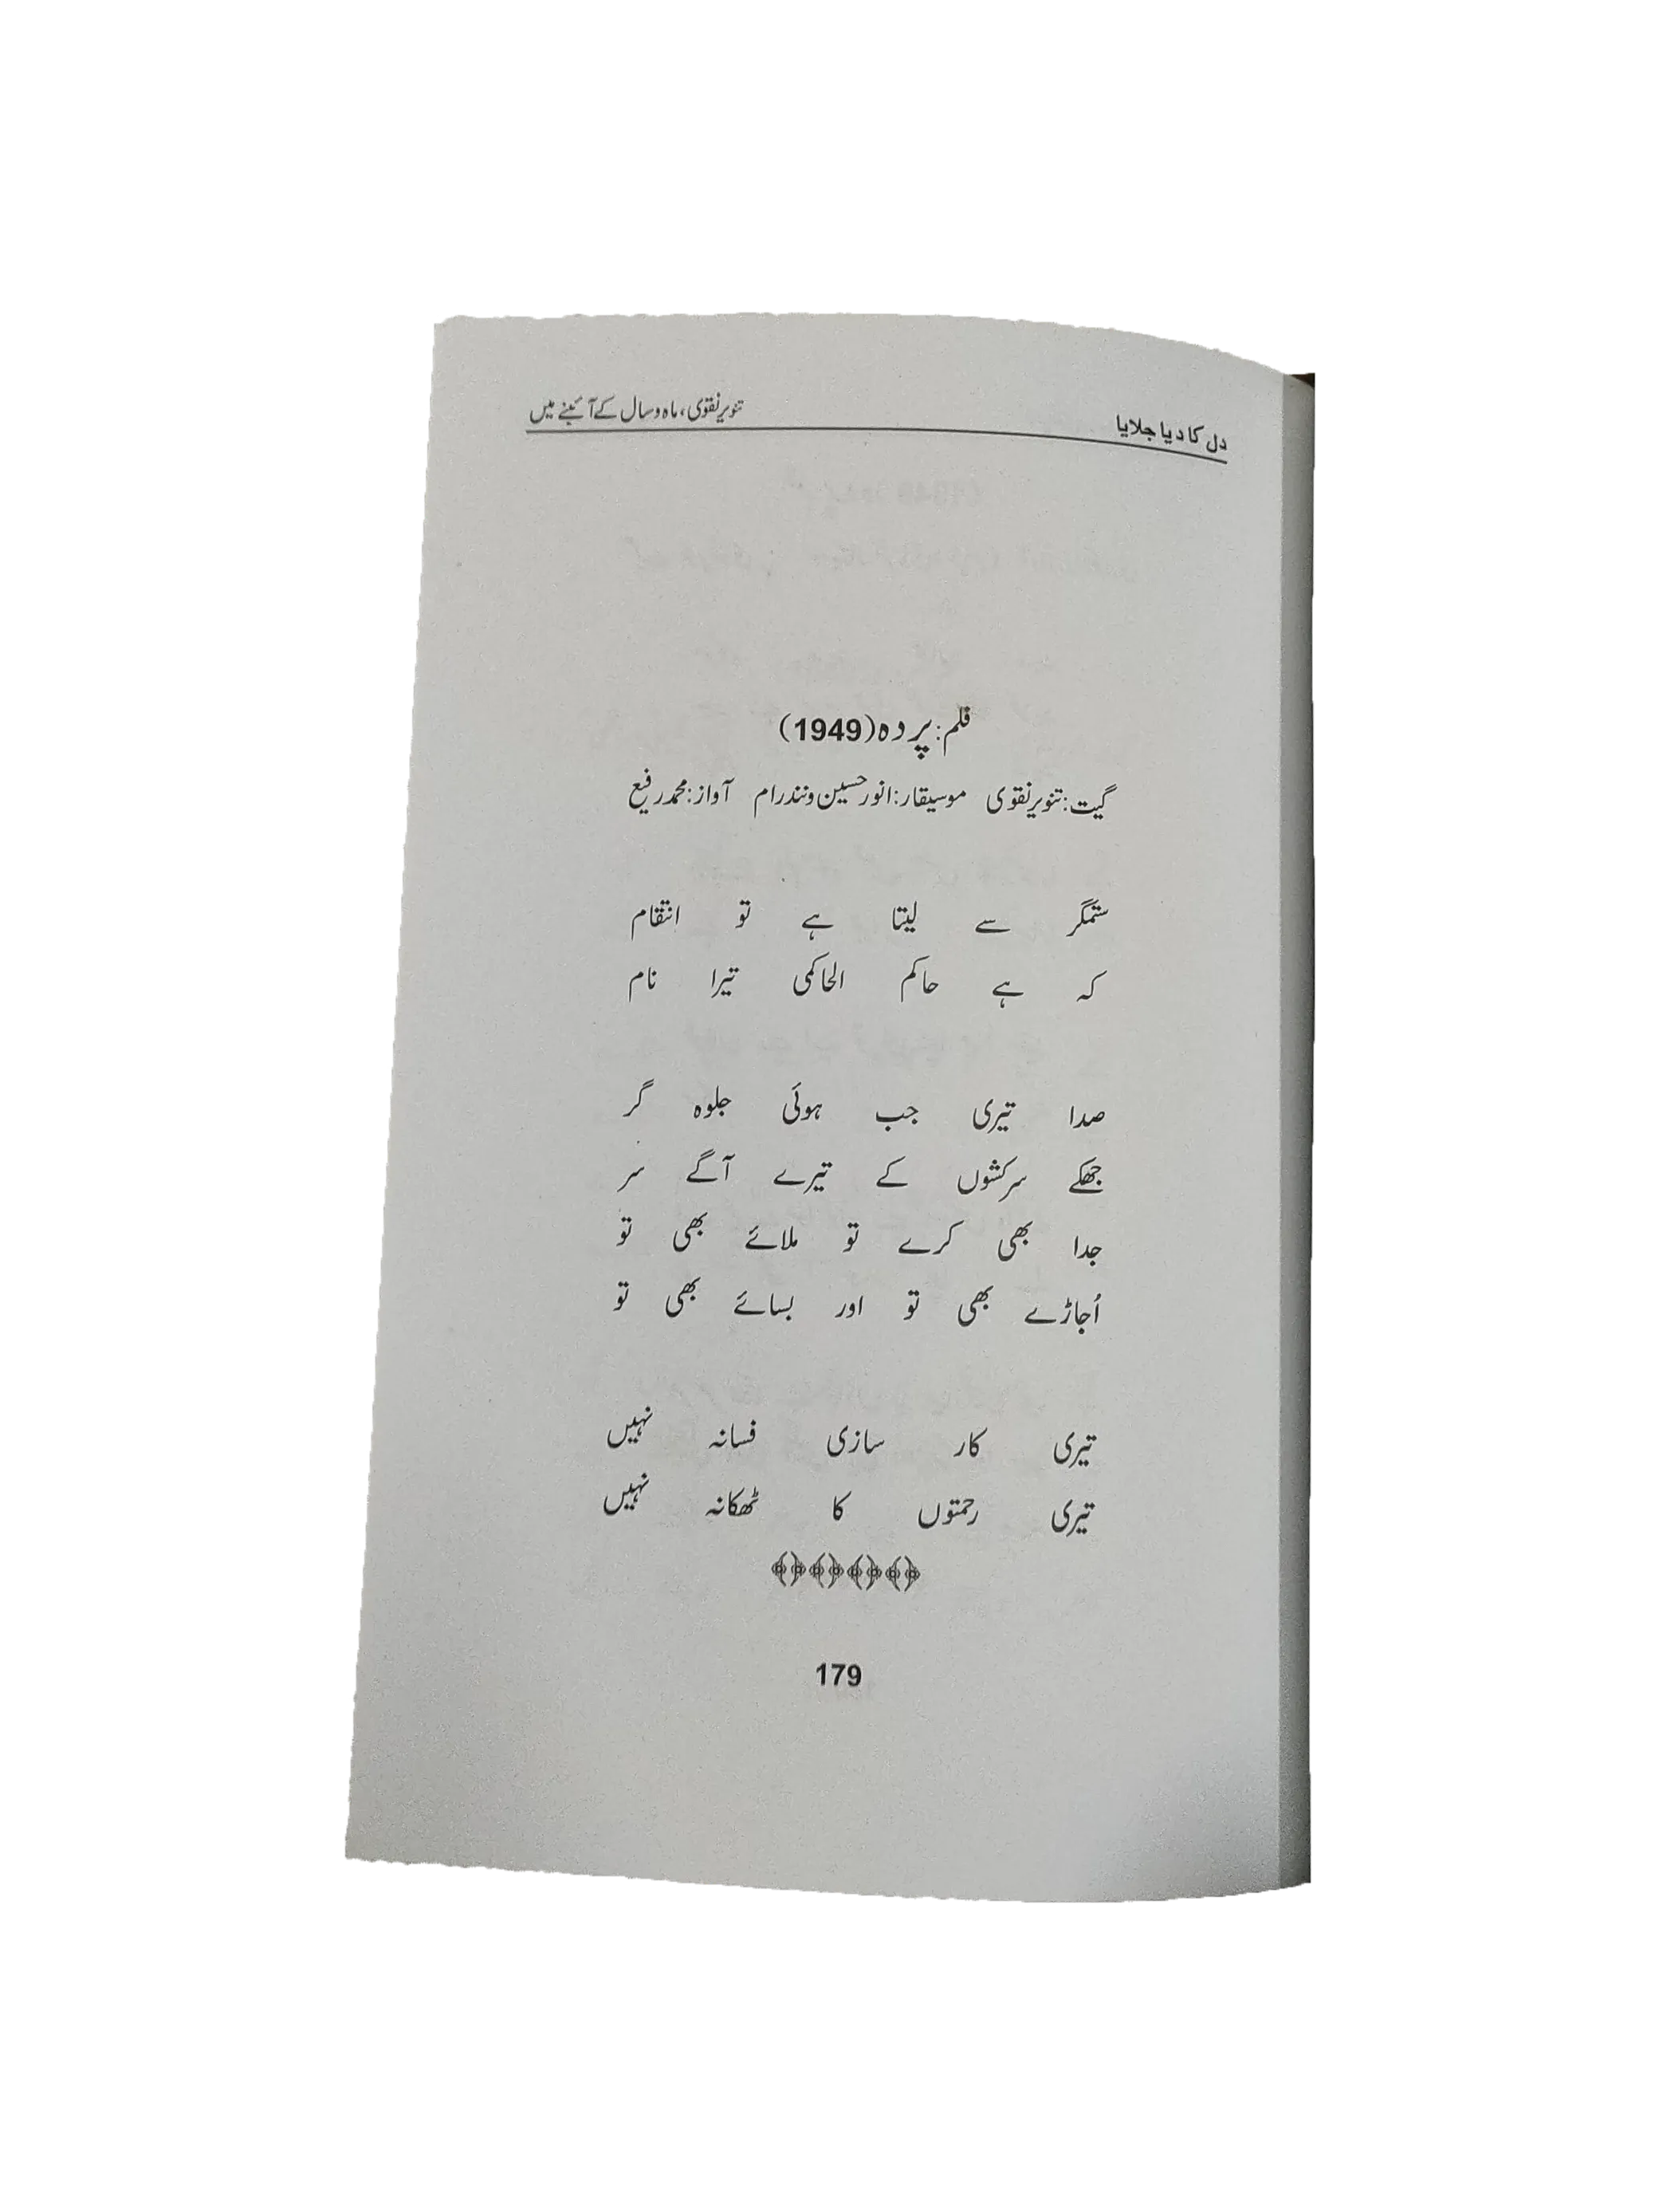 دل کا دیا جلایا
تنویر نقوی، ماہ و سال کے آئینے میں
فلم: پردہ (1949)
گیت: تنویر نقوی موسیقار: انور حسین و نندرام آواز: محمد رفیع
ستمگر سے لیتا ہے تو انتقام
کہ ہے حاکم الحاکمی تیرا نام
صدا تیری جب ہوئی جلوہ گر
جھکے سرکشوں کے تیرے آگے سر
جدا بھی کرے تو ملائے بھی تو
اُجاڑے بھی تو اور بسائے بھی تو
تیری کار سازی فسانہ نہیں
تیری رحمتوں کا ٹھکانہ نہیں
179